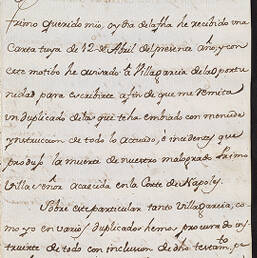 Primo querido mio, oy dia de la fha he recibido una
Carta tuya de 12 de Abril del presente año, y con
este motibo he avisado tā Villagarcia de la oportu
nidad para escribirte afin de que me remita
un duplicado de la que te ha embiado con menuda
ynstruccion de todo lo acaecido, è incidentes que
produjo la muerte de nuestro malogrado Primo
Villaseñor acaecida en la Corte de Napoles.
Sobre este particular tanto Villagarcia, co
mo yo en varios duplicados hemos procurado in
struirte de todo con inclusion de dho testamto,